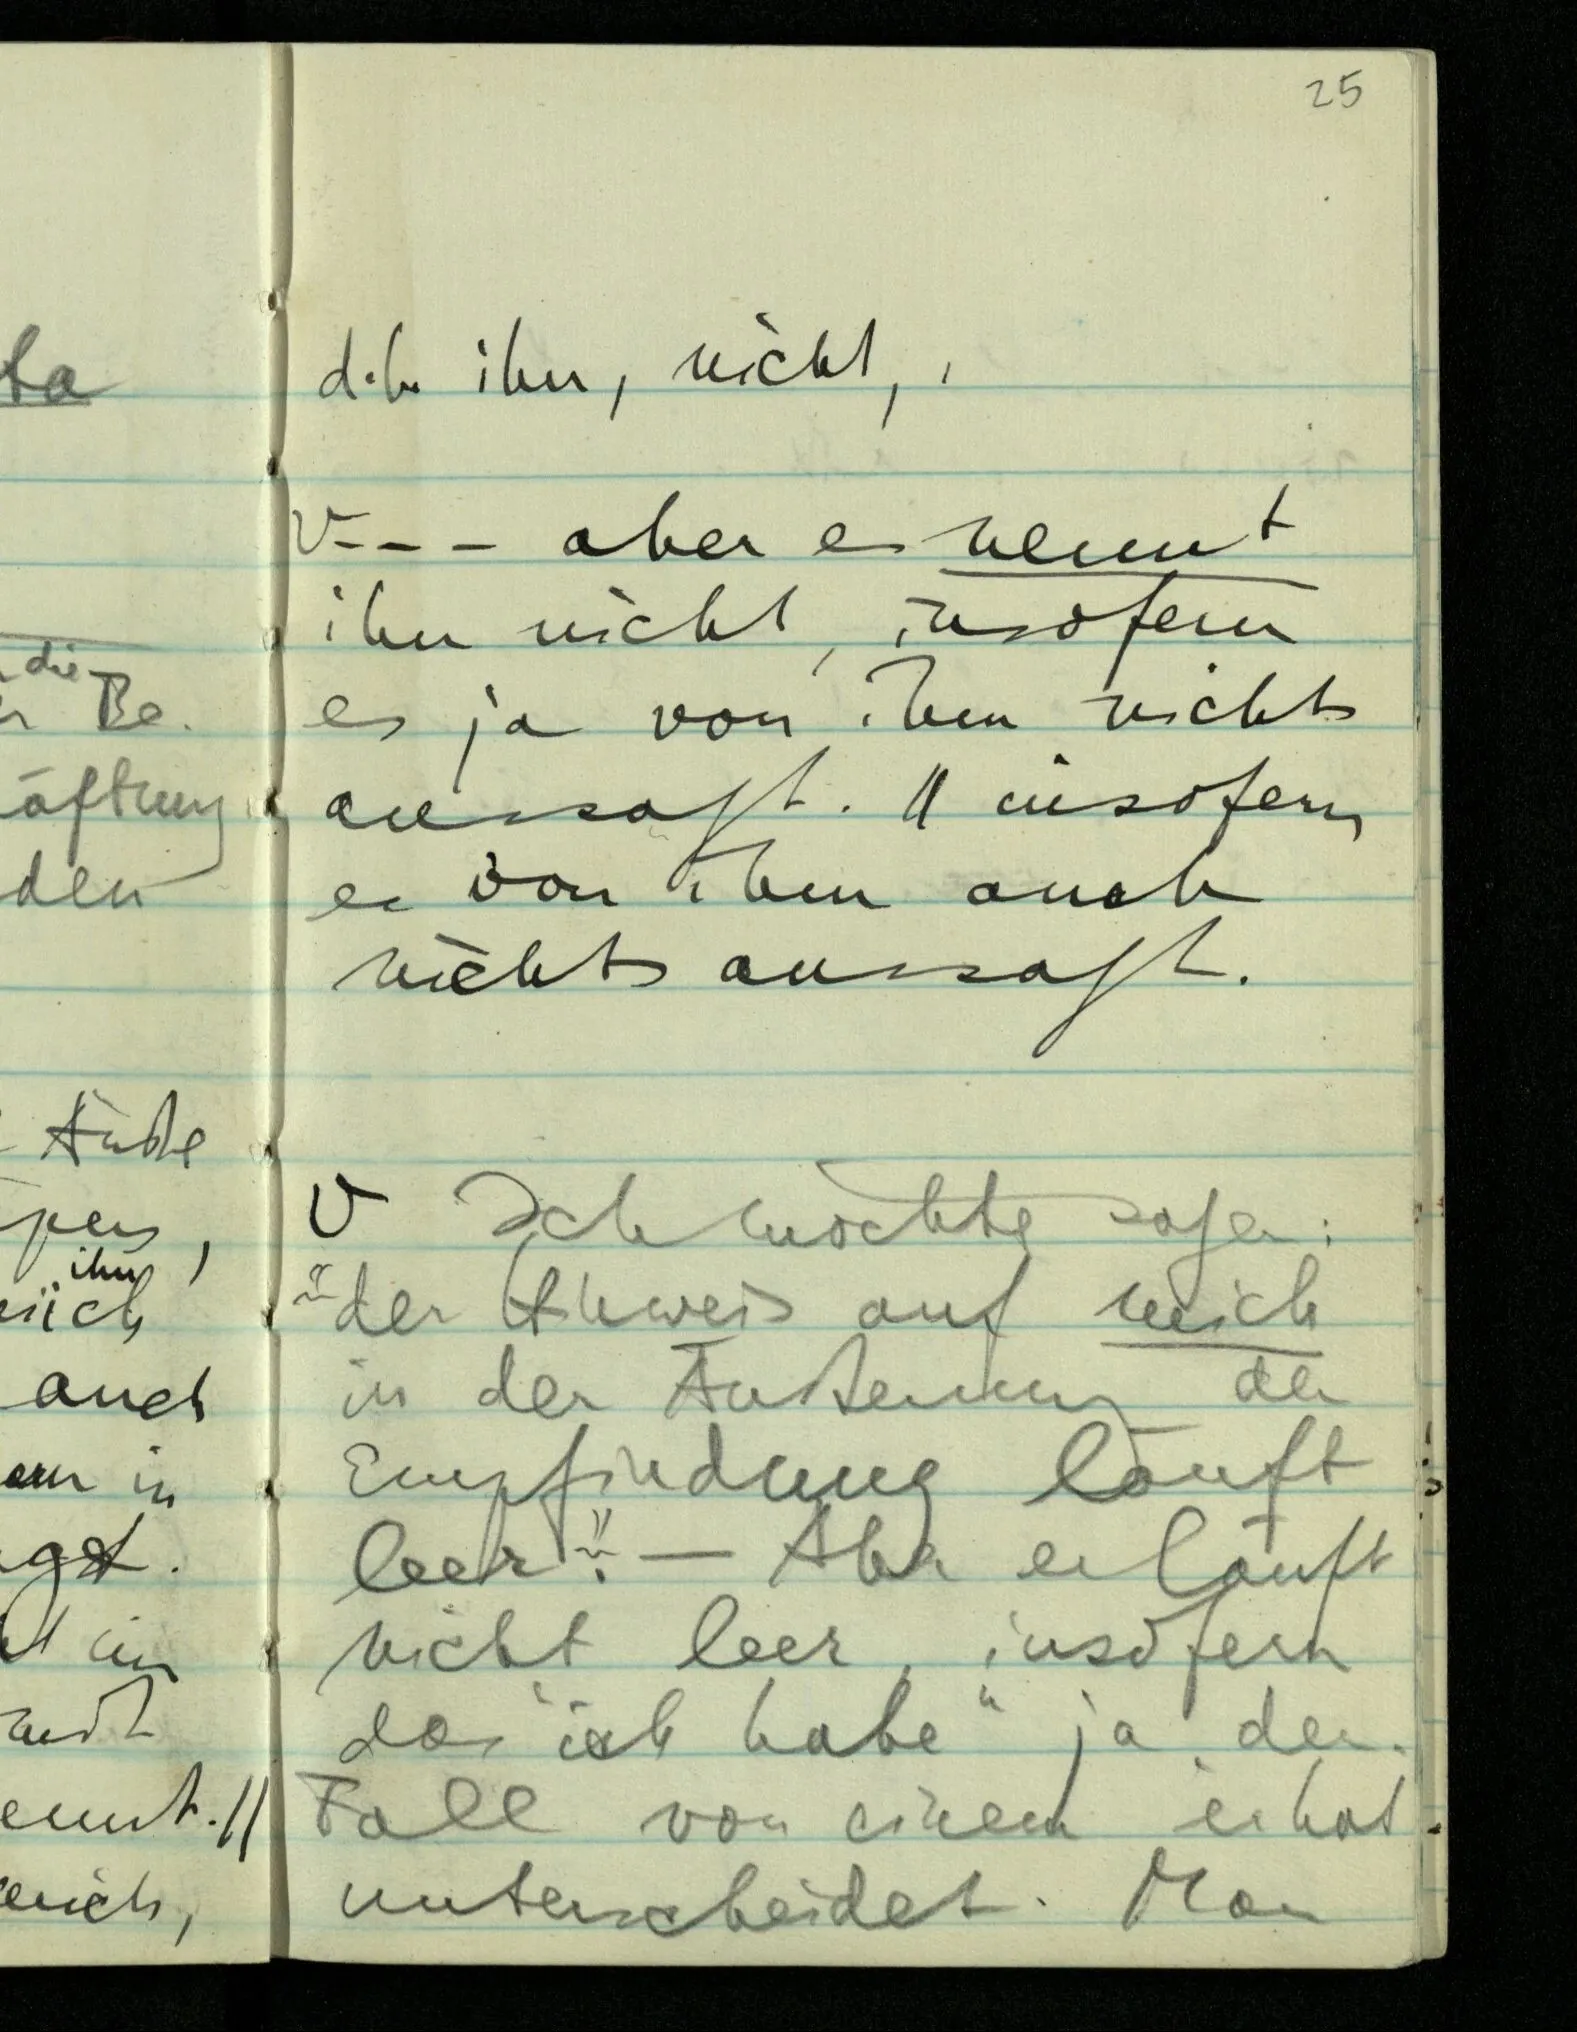 25
ta
d.h. ihn, nicht, ,
V--- aber es nennt
ihn nicht, insofern
die
es ja von ihm nichts
r Be.
aussagt. // insofern
äftung
es von ihm auch
den
nichts aussagt.
V Ich möchte sagen:
"der Hinweis auf mich
ihn
auch
in der Äußerung der
Empfindung läuft
in
leer". — Aber er läuft
nicht leer, insofern
das "ich habe" ja den
Fall von einem er hat
ennt. //
unterscheidet. Man